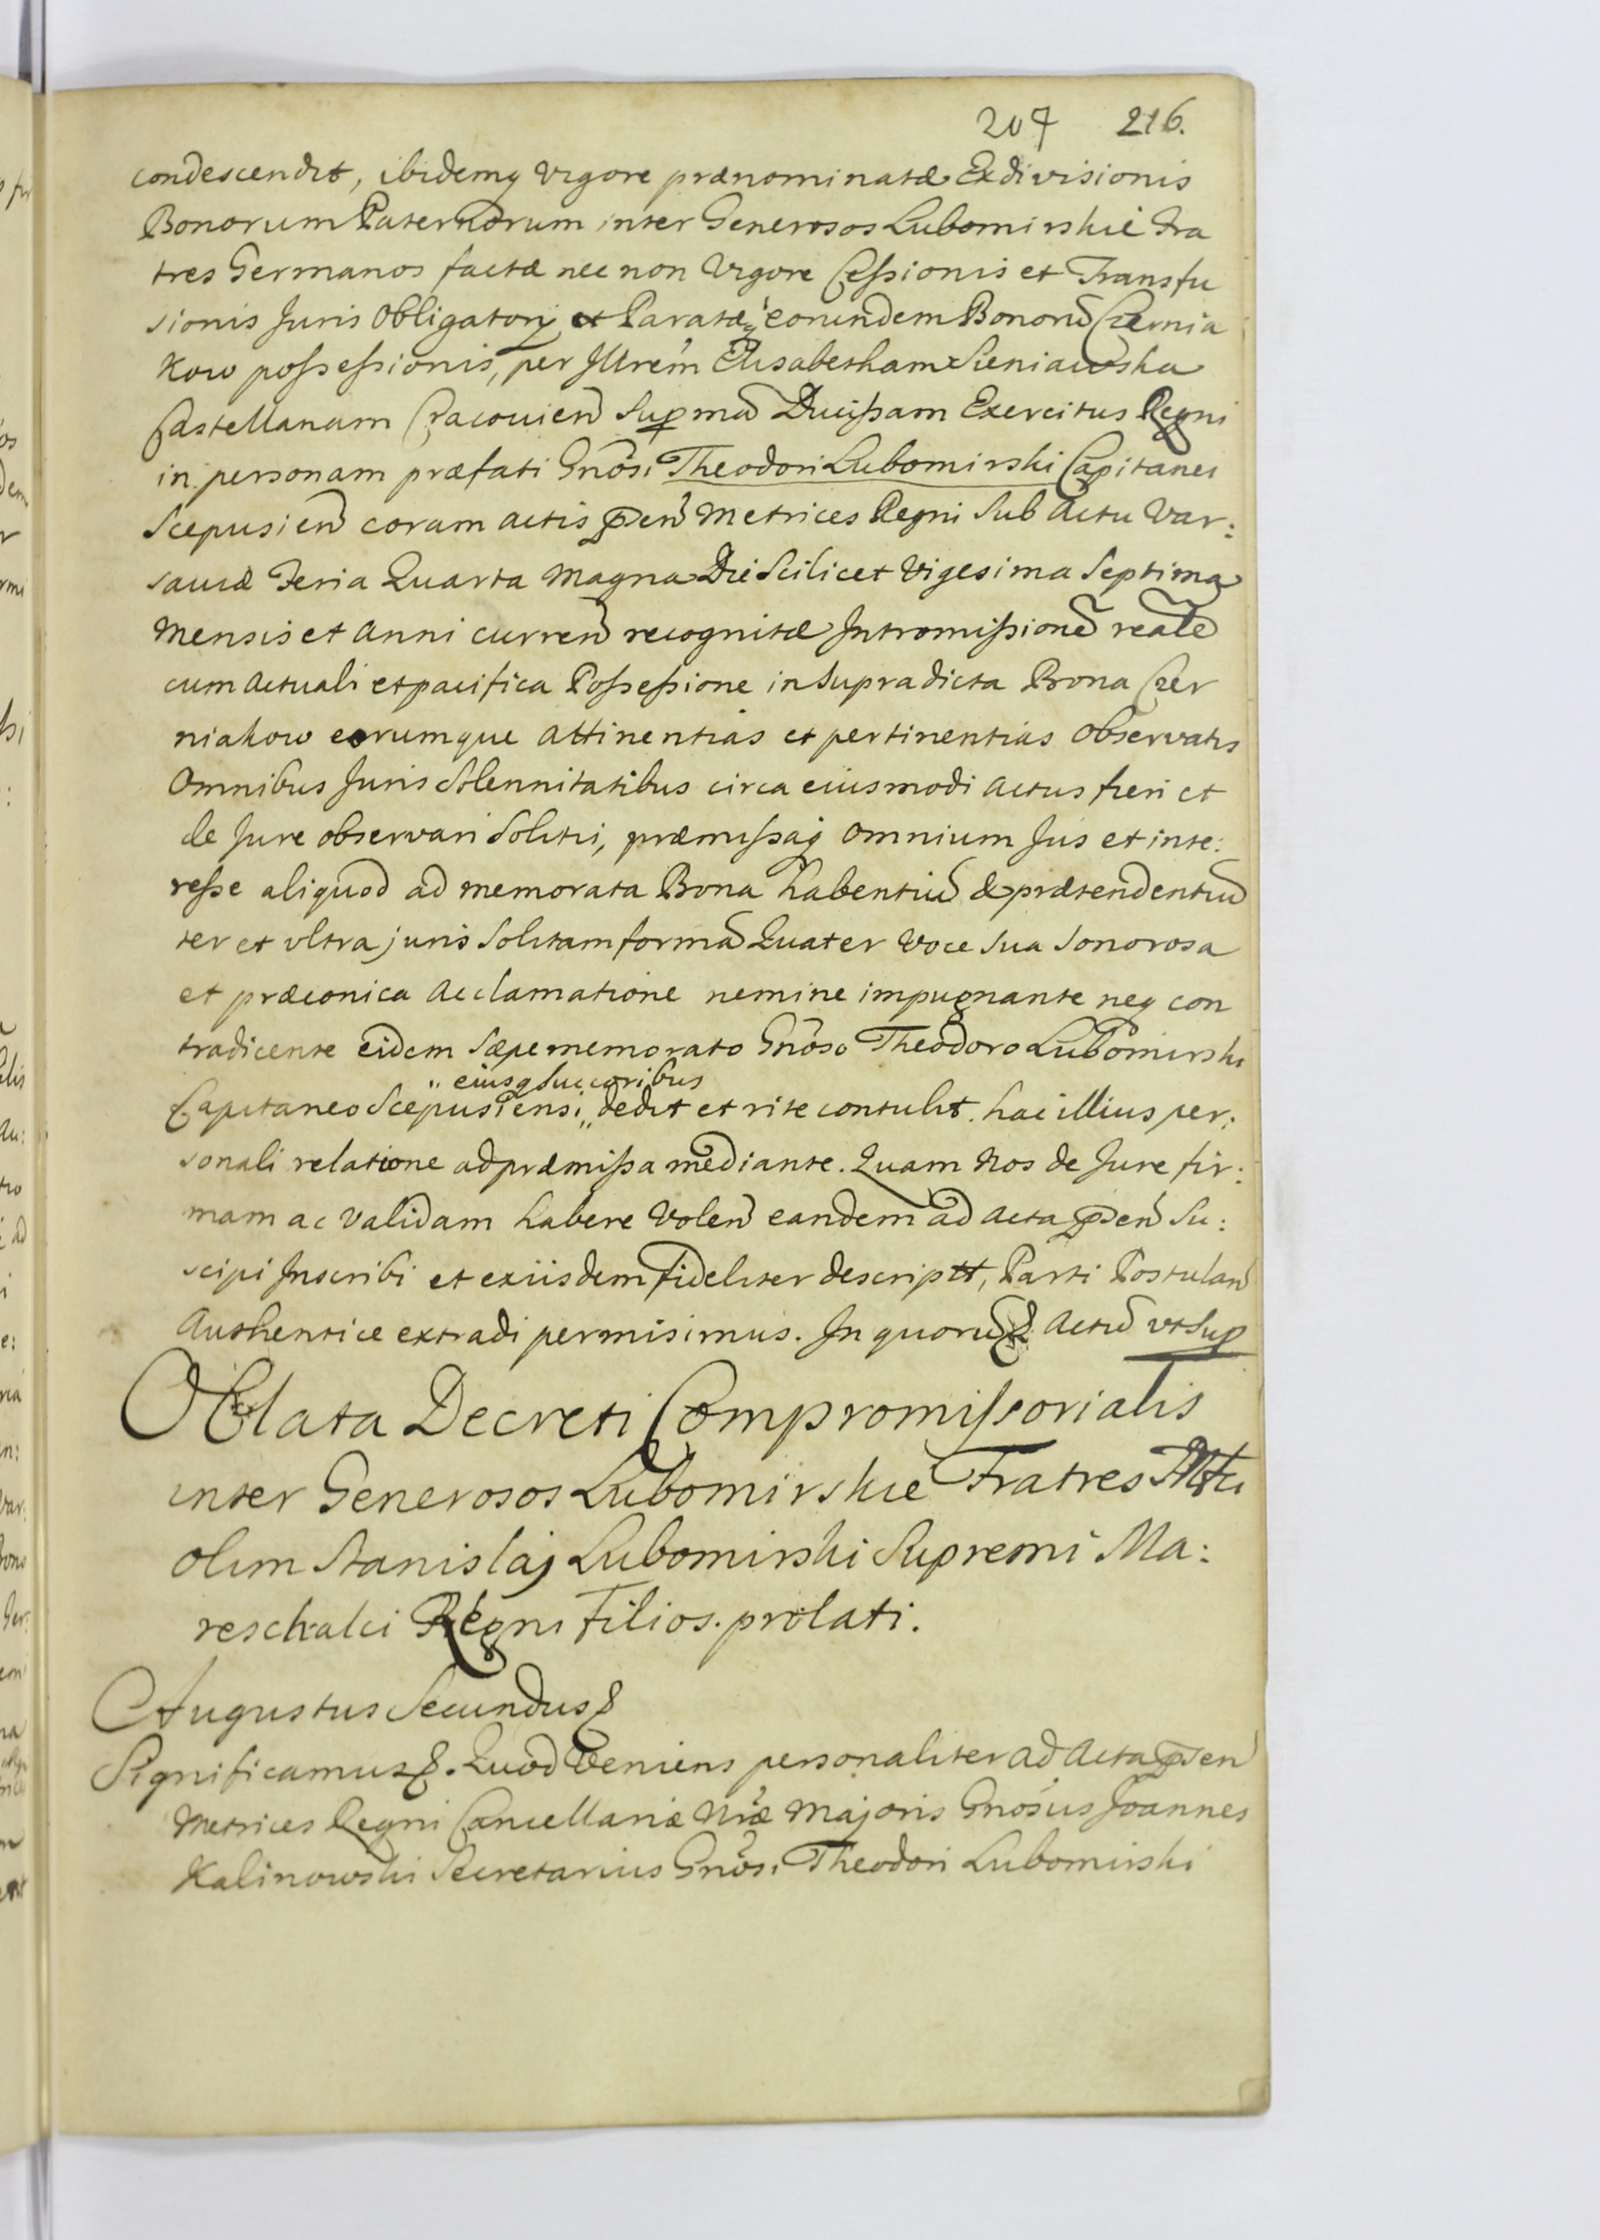 207 216.
condescendit, ibidemq vigore prænominatæ Exdivisionis
Bonorum Paternorum inter Generosos Lubomirskie Fra
tres Germanos factæ nec non Vigore Cessionis et Transfu
sionis Juris Obligatorij et Paratæq eorundem Bonorũ Czernia
kow possessionis, per Illrem Elisabetham Sieniawska
Castellanam Cracovien Supmã Ducissam Exercitus Regni
in personam præfati Gnosi Theodori Lubomirski Capitanei
Scepusien coram actis pñen Metrices Regni Sub Actu Var:
saviæ Feria Quarta Magna Die Scilicet Vigesima Septima
Mensis et Anni curren recognitæ Intromissionẽ realẽ
cum actuali et pacifica Possessione in Supradicta Bona Czer
niakow eorumque attinentias et pertinentias Observatis
Omnibus Juris Solennitatibus circa eiusmodi actus fieri et
de Jure observari Solitis, præmissaq omnium Jus et inte:
resse aliquod ad memorata Bona habentiũ & prætendentiũ
ter et ultra juris Solitam formã Quater voce sua Sonorosa
et præconica Acclamatione nemine impugnante neq con
tradicente eidem Sæpememorato Gnoso Theodoro Lubomirski
" eiusq succoribus
Capitaneo Scepusiensi " dedit et rite contulit. hac illius per:
sonali relatione ad præmissa mediante. Quam Nos de Jure fir:
mam ac validam habere Volen eandem ad acta pñen Su:
scipi Inscribi et exiisdem fideliter descriptt, Parti Postulan
Authentice extradi permisimus. In quorũ &. Actũ ut Sup
Oblata Decreti Compromissorialis
inter Generosos Lubomirskie Fratres
olim Stanislaj Lubomirski Supremi Ma:
reschalci Regni Filios. prolati.
Augustus Secundus &
Significamus &. Quod Veniens personaliter ad Acta pñen
Metrices Regni Cancellariæ Nræ Majoris Gnosus Joannes
Kalinowski Secretarius Gnosi Theodori Lubomirski